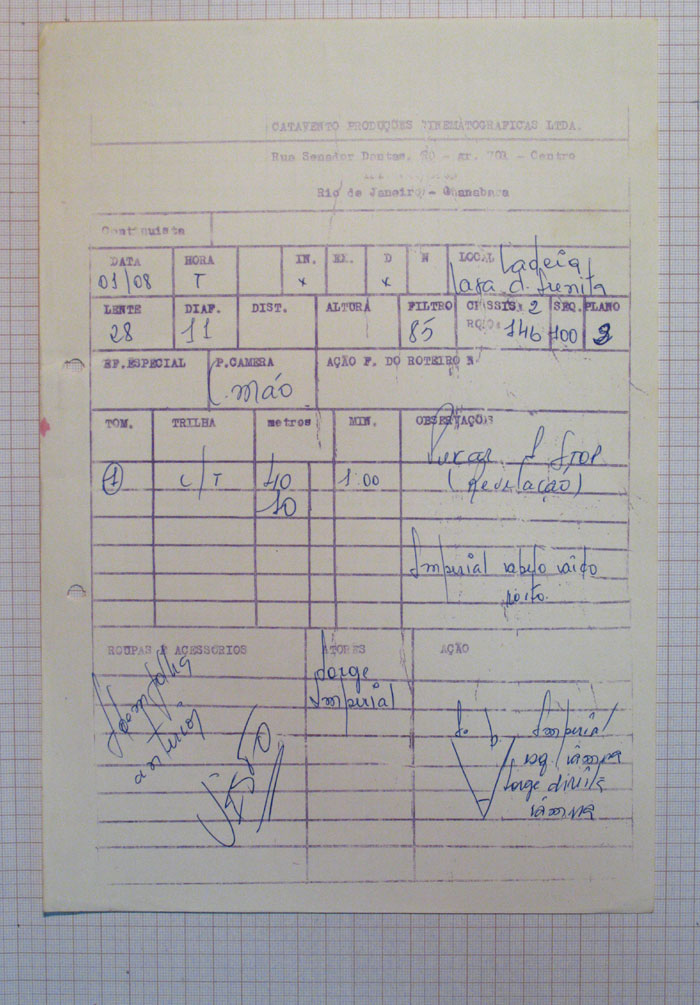 CATAVENTO PRODUÇÕES CINEMATOGRAFICAS LTDA.
Rua Senador Dantas, 20 - gr. 708 - Centro
Rio de Janeiro - Guanabara
Continuista
DATA HORA IN. EX. D N LOCAL
01/08 T x x
LENTE DIAF. DIST. ALTURA FILTRO CHASSIS: 2 SEQ. PLANO
28 11 85 146 100 3
EF.ESPECIAL P.CAMERA AÇÃO P. DO ROTEIRO N
mão
TOM. TRILHA metros MIN. OBSERVAÇÕES
Puxar 1 STOP
(Revelação)
1 c/T 40 1.00
10
Imperial
ROUPAS E ACESSÓRIOS ATORES AÇÃO
Jorge
Imperial
Idem folha
anterior
VISTO
Imperial
esq. câmera
Jorge direita
câmera